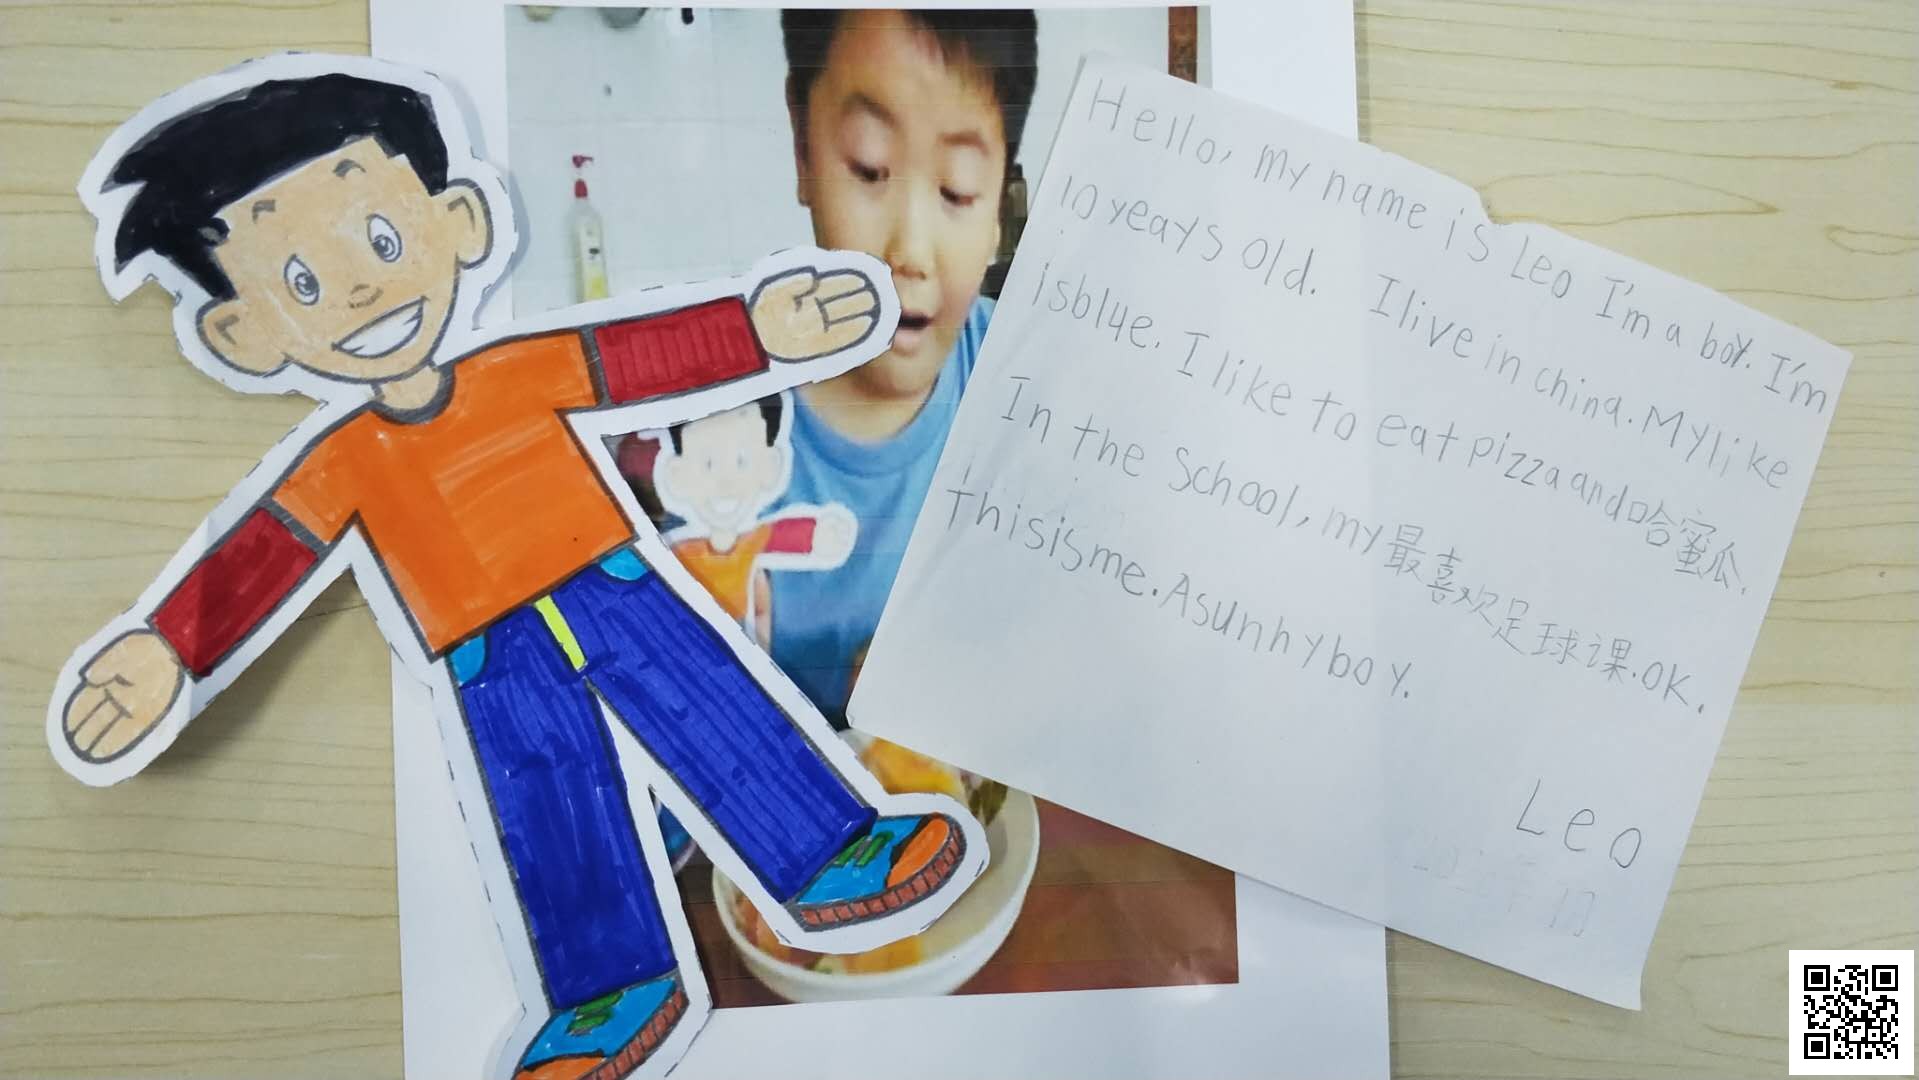 Hello, my name is Leo I'm a boy. I'm
10 years old. I live in china. My like
is blue. I like to eat pizza and 哈蜜瓜.
In the School, my 最喜欢足球课. OK.
This is me. A sunny boy.
Leo